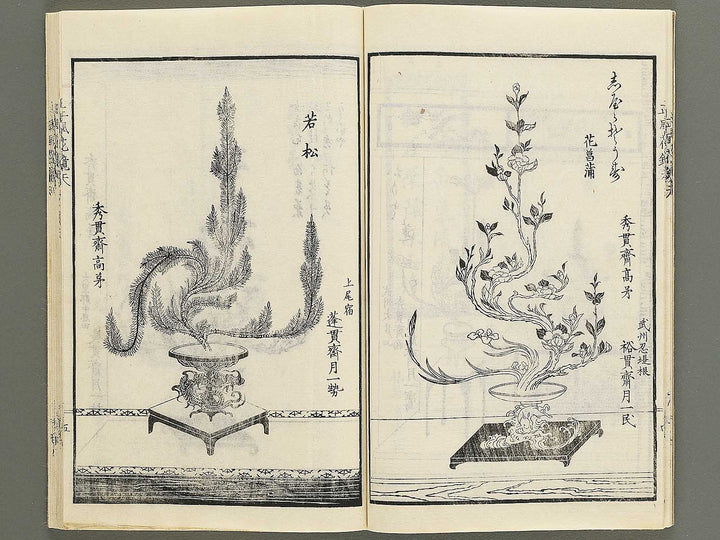 花菖蒲
秀貫齋高弟
武州忍堤根
裕貫齋月一民
若松
上尾宿
蓬貫齋月一勢
秀貫齋高弟